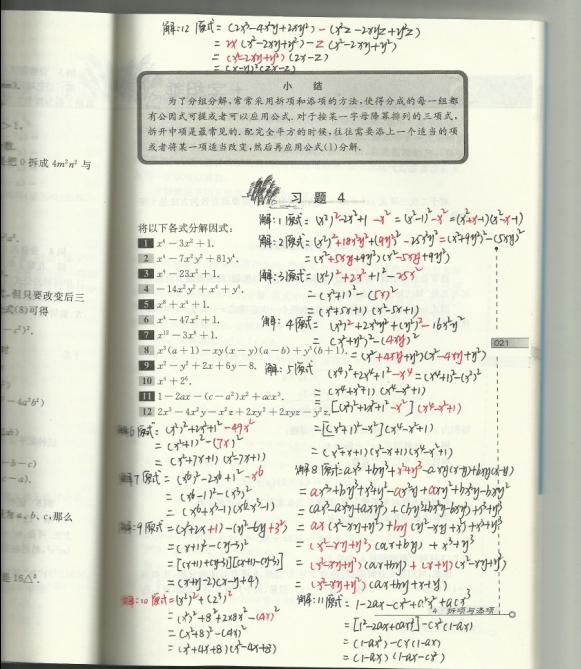 解:12 原式 = (2x³-4x²y+2xy²) - (x²z-2xyz+y²z)
= 2x(x²-2xy+y²) - z(x²-2xy+y²)
= (x²-2xy+y²)(2x-z)
= (x-y)²(2x-z)
小 结
为了分组分解,常常采用拆项和添项的方法,使得分成的每一组都
有公因式可提或者可以应用公式.对于按某一字母降幂排列的三项式,
拆开中项是最常见的.配完全平方的时候,往往需要添上一个适当的项
或者将某一项适当改变,然后再应用公式(1)分解.
把 0 拆成 4m²n² 与
但只要改变后三
式(8)可得
那么
是 16△².
习 题 4
将以下各式分解因式:
1 x⁴-3x²+1.
2 x⁴-7x²y²+81y⁴.
3 x⁴-23x²+1.
4 -14x²y²+x⁴+y⁴.
5 x⁸+x⁴+1.
6 x⁴-47x²+1.
7 x¹²-3x⁶+1.
8 x³(a+1)-xy(x-y)(a-b)+y³(b+1).
9 x²-y²+2x+6y-8.
10 x⁴+2⁶.
11 1-2ax-(c-a²)x²+acx³.
12 2x³-4x²y-x²z+2xy²+2xyz-y²z.
解:1 原式 = (x²)²-2x²+1-x² = (x²-1)²-x² = (x²+x-1)(x²-x-1)
解:2 原式 = (x²)²+18x²y²+(9y²)²-25x²y² = (x²+9y²)²-(5xy)²
= (x²+5xy+9y²)(x²-5xy+9y²)
解:3 原式 = (x²)²+2x²+1²-25x²
= (x²+1)²-(5x)²
= (x²+5x+1)(x²-5x+1)
解:4 原式 = (x²)²+2x²y²+(y²)²-16x²y²
= (x²+y²)²-(4xy)²
= (x²+4xy+y²)(x²-4xy+y²)
021
解:5 原式 = (x⁴)²+2x⁴+1²-x⁴ = (x⁴+1)²-(x²)²
= (x⁴+x²+1)(x⁴-x²+1)
= [(x²)²+2x²+1²-x²](x⁴-x²+1)
= [(x²+1)²-x²](x⁴-x²+1)
= (x²+x+1)(x²-x+1)(x⁴-x²+1)
解6 原式 = (x²)²+2x²+1²-49x²
= (x²+1)²-(7x)²
= (x²+7x+1)(x²-7x+1)
解7 原式 = (x⁶)²-2x⁶+1²-x⁶
= (x⁶-1)²-(x³)²
= (x⁶+x³-1)(x⁶-x³-1)
解8 原式 = ax³+by³+x³+y³-axy(x-y)+bxy(x-y)
= ax³+by³+x³+y³-ax²y+axy²+bx²y-bxy²
= (ax³-ax²y+axy²)+(by³+bx²y-bxy²)+x³+y³
= ax(x²-xy+y²)+by(y²-xy+x²)+x³+y³
= (x²-xy+y²)(ax+by)+x³+y³
= (x²-xy+y²)(ax+by)+(x+y)(x²-xy+y²)
= (x²-xy+y²)(ax+by+x+y)
解:9 原式 = (x²+2x+1)-(y²-6y+3²)
= (x+1)²-(y-3)²
= [(x+1)+(y-3)][(x+1)-(y-3)]
= (x+y-2)(x-y+4)
解:10 原式 = (x²)²+(2³)²
= (x²)²+8²+2x8x²-(4x)²
= (x²+8)²-(4x)²
= (x²+4x+8)(x²-4x+8)
解:11 原式 = 1-2ax-cx²+a²x²+acx³
4 拆项与添项
= [1²-2ax+(ax)²]-cx²(1-ax)
= (1-ax)²-cx²(1-ax)
= (1-ax)(1-ax-cx²)